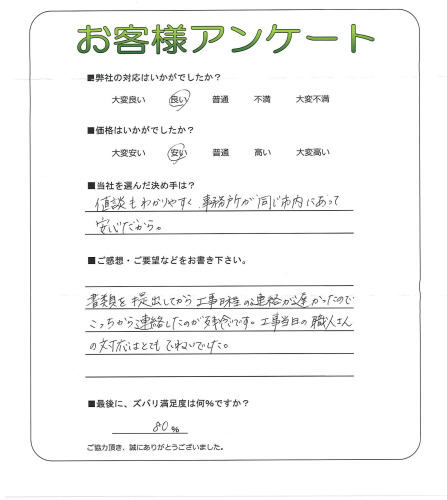 お客様アンケート
■弊社の対応はいかがでしたか？
大変良い 良い 普通 不満 大変不満
■価格はいかがでしたか？
大変安い 安い 普通 高い 大変高い
■当社を選んだ決め手は？
値段もわかりやすく、事務所が同じ市内にあって
安心だから。
■ご感想・ご要望などをお書き下さい。
書類を提出してから工事日程の連絡が遅かったので
こっちから連絡したのが残念です。工事当日の職人さん
の対応はとてもていねいでした。
■最後に、ズバリ満足度は何%ですか？
80 %
ご協力頂き、誠にありがとうございました。